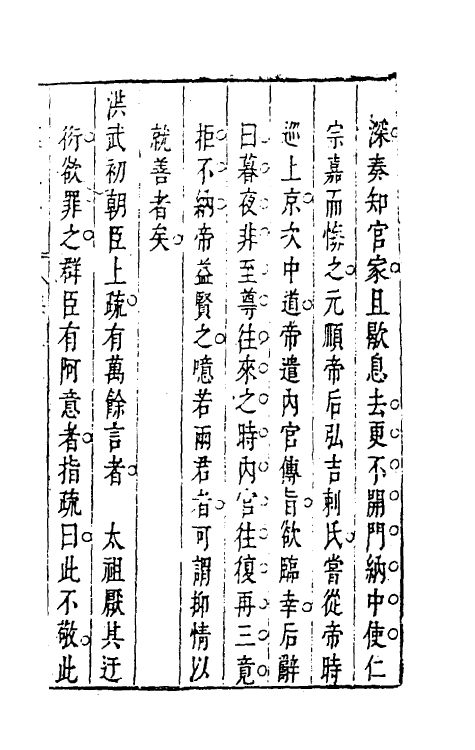 深奏知官家且歇息去更不開門納中使仁
宗嘉而憐之元順帝后弘吉剌氏嘗從帝時
巡上京次中道帝遣內官傳旨欲臨幸后辭
曰暮夜非至尊往來之時內官往復再三竟
拒不納帝益賢之噫若兩君者可謂抑情以
就善者矣
洪武初朝臣上疏有萬餘言者 太祖厭其迂
衍欲罪之群臣有阿意者指疏曰此不敬此